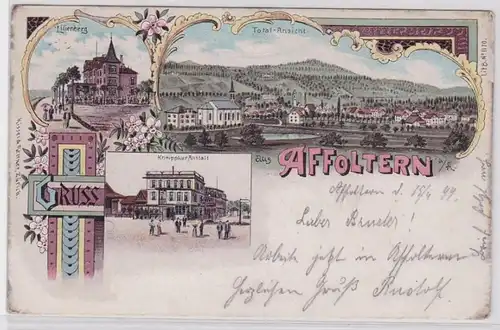 Lilienberg
Total-Ansicht
Kneippkur-Anstalt
GRUSS
aus AFFOLTERN a/A.
Affoltern d. 15/4 99.
Lieber Bruder!
Arbeite jetzt in Affoltern
Herzlichen Gruß Rudolf